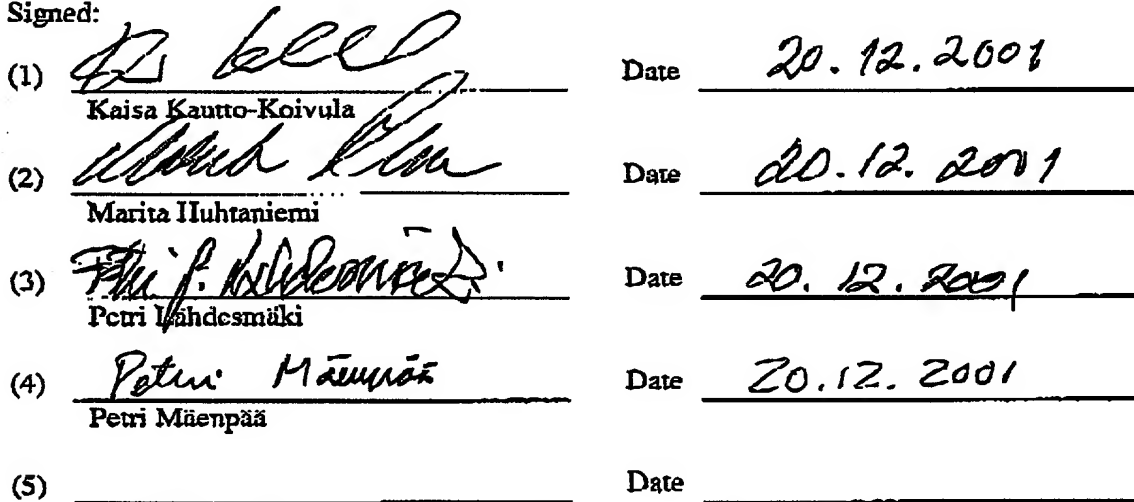 Signed:
(1) Date 20.12.2001
Kaisa Kautto-Koivula
(2) Date 20.12.2001
Marita Huhtaniemi
(3) Date 20.12.2001
Petri Lähdesmäki
(4) Petri Mäenpää Date 20.12.2001
Petri Mäenpää
(5) Date